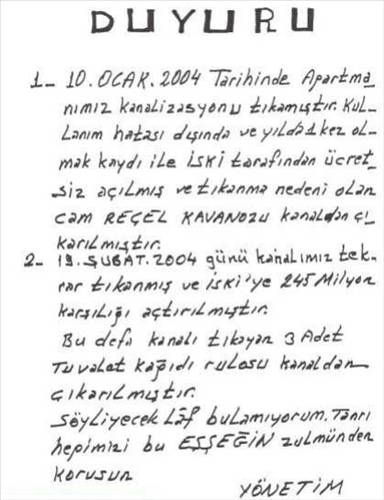 DUYURU
1- 10.OCAK.2004 Tarihinde Apartma_
nımız kanalizasyonu tıkamıştır. Kul-
lanım hatası dışında ve yılda 1 kez ol-
mak kaydı ile İSKİ tarafından ücret-
siz açılmış ve tıkanma nedeni olan
cam REÇEL KAVANOZU kanaldan çı-
karılmıştır.
2- 19.ŞUBAT.2004 günü kanalımız tek-
rar tıkanmış ve İski'ye 245 Milyon
karşılığı açtırılmıştır.
Bu defa kanalı tıkayan 3 Adet
Tuvalet kağıdı rulosu kanaldan
çıkarılmıştır.
Söyliyecek Lâf bulamıyorum. Tanrı
hepimizi bu EŞŞEĞİN zulmünden
korusun
YÖNETİM